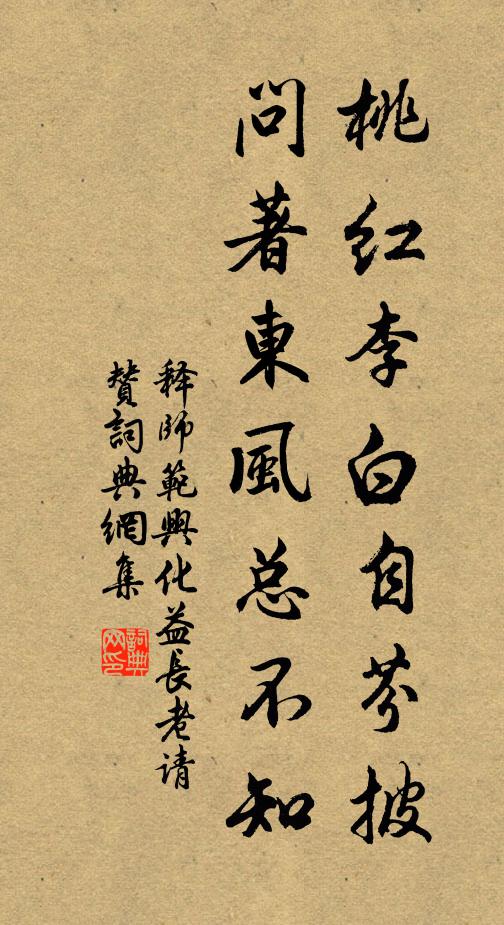 桃红李白自芬披
問著東風总不知
释師範興化益長老请
赞詞典網集
詞典网印